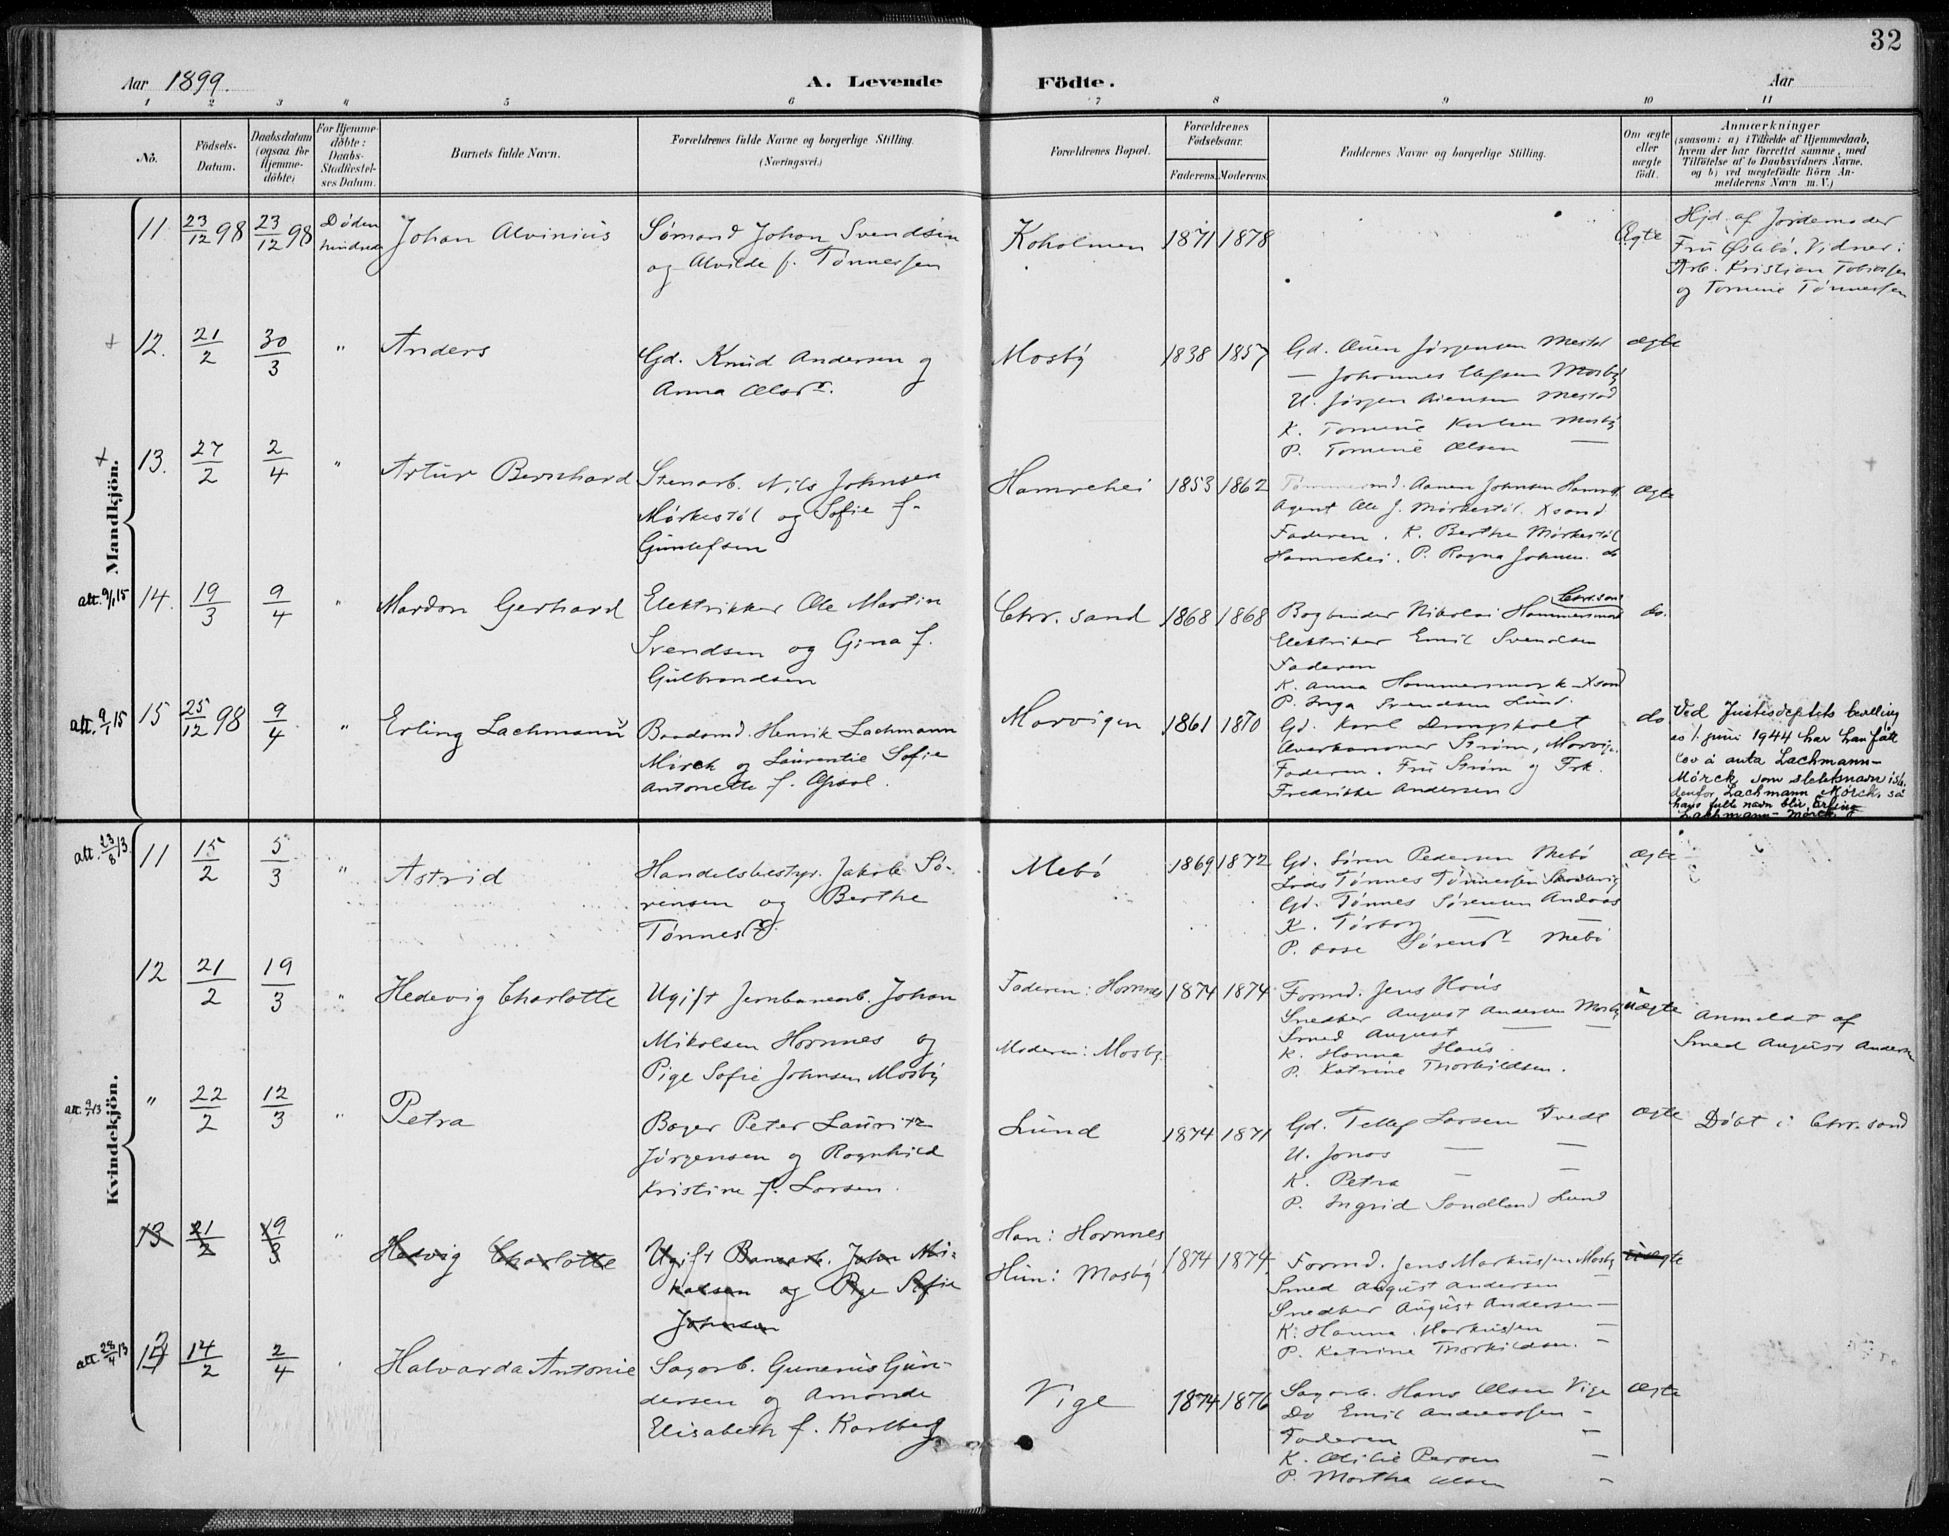 32
Aar 1899.
A. Levende Födte.
Aar
1 2 3 4 5 6 7 8 9 10 11
No.
Födsels-Datum.
Daabsdatum (ogsaa for Hjemme-döbte)
For Hjemme-döbte: Daabs-Stadfæstel-ses Datum.
Barnets fulde Navn.
Forældrenes fulde Navne og borgerlige Stilling.
(Næringsvei.)
Forældrenes Bopæl.
Forældrenes Födselsaar.
Faderens. Moderens.
Faddernes Navne og borgerlige Stilling.
Om ægte eller uægte födt.
Anmærkninger
(saasom: a) i Tilfælde af Hjemmedaab,
hvem der har forrettet samme, med
Tilföielse af to Daabsvidners Navne,
og b) ved uægtefödte Börn An-
melderens Navn m. V.)
Mandkjön.
11 23/12 98 23/12 98 Døden hindrede Johan Alvinius
Sømand Johan Svendsen
og Alvilde f. Tønnessen
Koholmen 1871 1878 Ægte
Hjd. af Jordemoder
Fru Østebø. Vidner:
Arb. Kristian Tobiassen
og Tomine Tønnessen
12. 21/2 30/3 " Anders
Gd. Knud Andersen og
Anna Olsdr.
Mosby 1838 1857
Gd. Ouen Jørgensen Mestad
— Johannes Olsen Mosby
U. Jørgen Ouensen Mestad
K. Tomine Knudsen Mosby
P. Tomine Olsen —
ægte
13. 27/2 2/4 " Artur Bernhard
Stenarb. Nils Johnsen
Mørkestøl og Sofie f.
Gunlefsen
Hamrehei 1853 1862
Tømmermd. Aanen Johnsen Hamreh.
Agent Ole J. Mørkestøl. Xsand
Faderen. K. Berthe Mørkestøl
Hamrehei. P. Ragna Johnsen do
ægte
att. 9/1 15 14. 19/3 9/4 " Mardon Gerhard
Elektrikker Ole Martin
Svendsen og Gina f.
Gulbrandsen
Chr.sand 1868 1868
Chr.sand
Bogbinder Nikolai Hammersmark
Elektriker Emil Svendsen
Faderen
K. Anna Hammersmark Xsand
P. Inga Svendsen Lund.
do.
att. 9/1 15 15 25/12 98 9/4 " Erling Lachmann
Baadsmd. Henrik Lachmann
Mörck og Laurentie Sofie
Antonette f. Apsol.
Marvigen 1861 1870
Gd. Karl Drangsholt
Overkanoner Strøm, Marvig.
Faderen. Fru Strøm og Frk.
Fredrikke Andersen
do
Ved Justisdeptets bevilling
av 1. juni 1944 har han fått
lov å anta Lachmann-
Mørck som slektsnavn ist.
denfor Lachmann Mørck, så
hans fulle navn blir Erling
Lachmann-Mørck.
Kvindekjön.
att. 23/8 13 11 15/2 5/3 " Astrid
Handelsbestyr. Jakob Sø-
rensen og Berthe
Tønnesdr.
Mebø 1869 1872
Gd. Søren Pedersen Mebø
Lods Tønnes Tønnessen
Gd. Tønnes Sørensen Andaas
K. Torborg — —
P. Aase Sørensdr Mebø
ægte
12 21/2 19/3 " Hedevig Charlotte
Ugift Jernbanearb. Johan
Mikalsen Hornnes og
Pige Sofie Johnsen Mosby
Faderen: Hornnes
Moderen: Mosby.
1874 1874
Formd. Jens Haus
Snedker August Andersen Mosby
Smed August — —
K. Hanna Haus.
P. Katrine Thorkildsen.
uægte
Anmeldt af
Smed August Andersen
att. 9/1 13 " 22/2 12/3 " Petra
Bager Peter Lauritz
Jörgensen og Ragnhild
Kristine f. Larsen.
Lund 1874 1871
Gd. Tellef Larsen Tvedt
U. Jonas — —
K. Petra — —
P. Ingrid Sandland Lund
ægte
Døbt i Chr.sand
13 21/2 19/3 " Hedvig Charlotte
Ugift Banearb. Johan Mi-
kalsen og Pige Sofie
Johnsen
Han: Hornnes
Hun: Mosby
1874 1874
Formd. Jens Markussen Mosby
Smed August Andersen —
Snedker August Andersen —
K: Hanna Markussen —
P. Katrine Thorkildsen. —
uægte
att. 28/4 13 13 14/2 2/4 Halvarda Antonie
Sagarb. Gunenius Gun-
dersen og Amanda
Elisabeth f. Karlberg
Vige 1874 1876
Sagarb. Hans Olsen Vige
Do Emil Andreassen —
Faderen —
K. Otilie Persen —
P. Martha Olsen —
Ægte